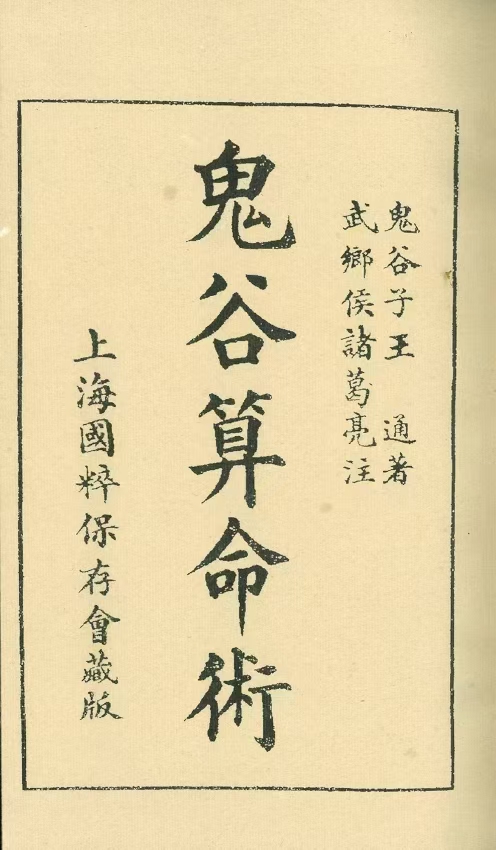 鬼谷子王　通著
武鄉侯諸葛亮注
鬼谷算命術
上海國粹保存會藏版